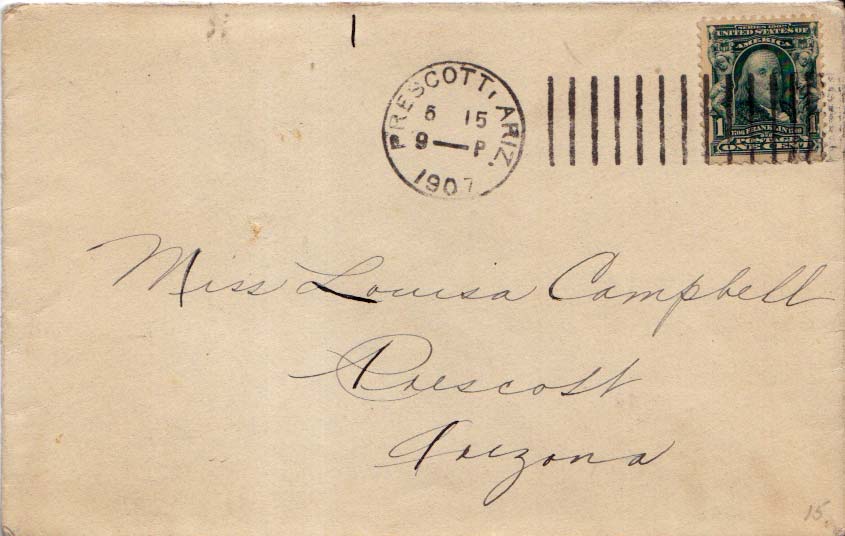 PRESCOTT, ARIZ.
6 15
9 — P
1907
SERIES 1902
UNITED STATES OF
AMERICA
1 1706 FRANKLIN 1790 1
POSTAGE
ONE CENT
Miss Louisa Campbell
Prescott
Arizona
15.